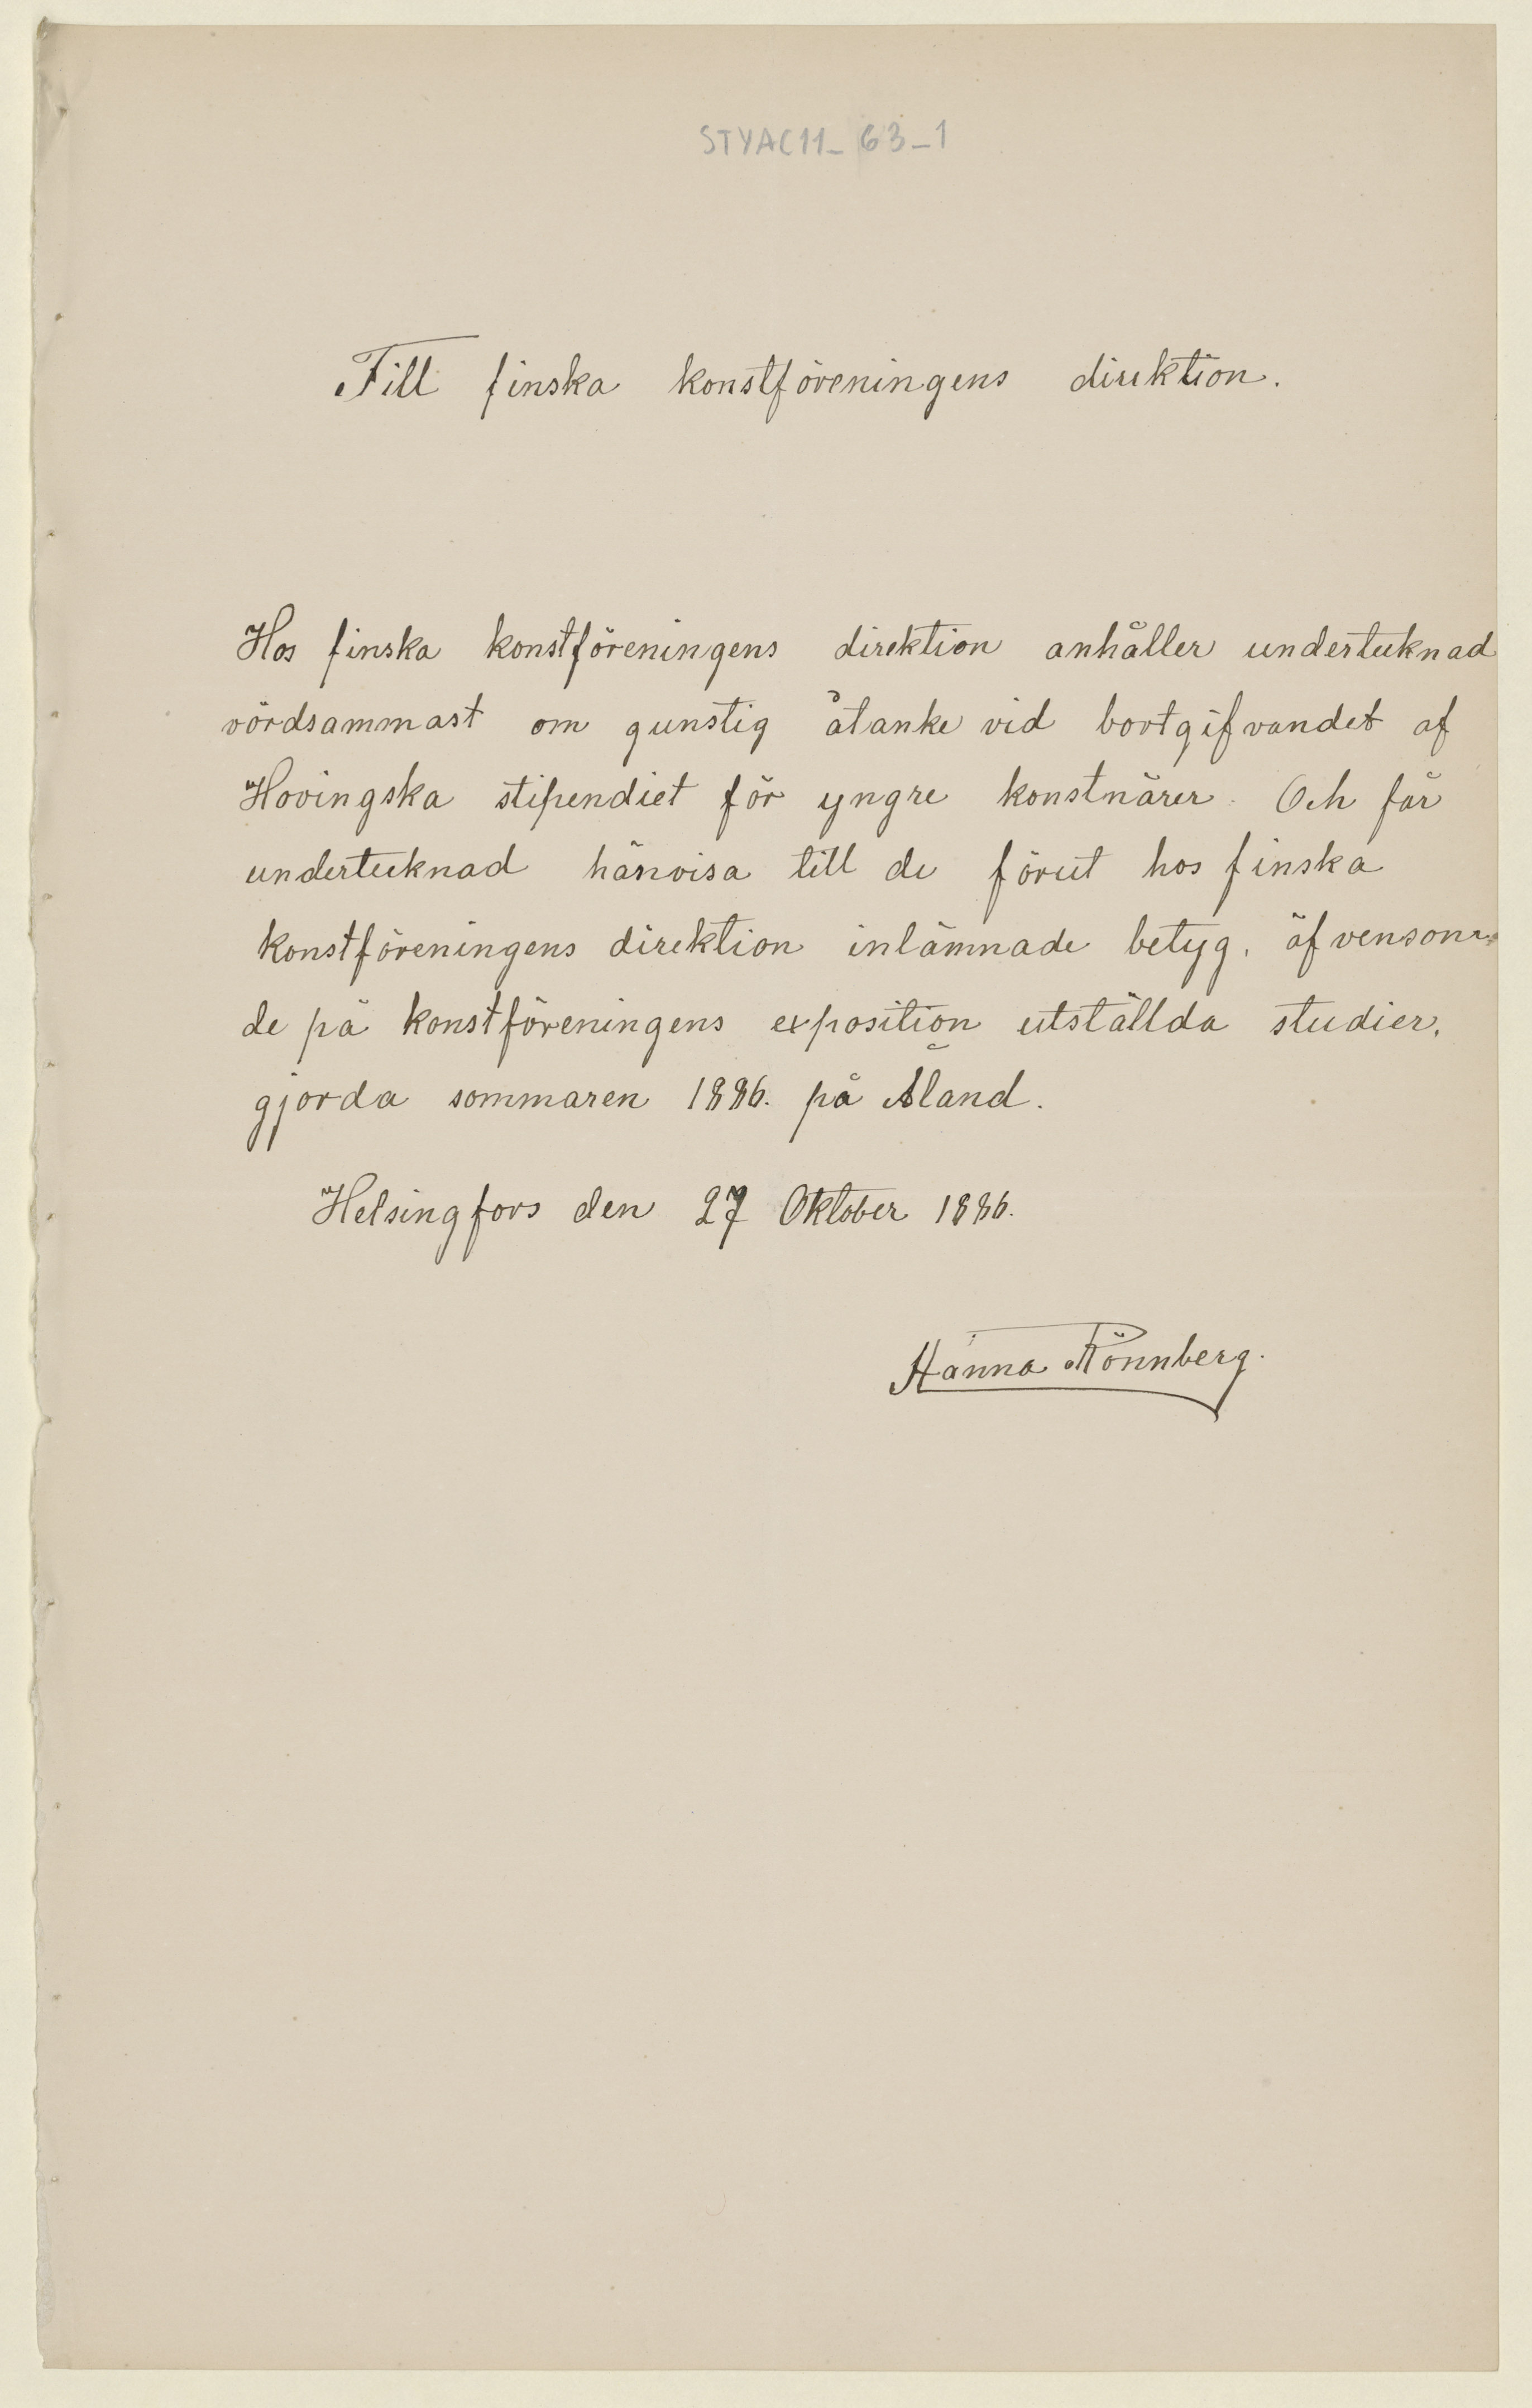 STYAC11_63_1
Till finska konstföreningens direktion.
Hos finska konstföreningens direktion anhåller undertecknad
vördsammast om gunstig åtanke vid bortgifvandet af
Hovingska stipendiet för yngre konstnärer. Och får
undertecknad hänvisa till de förut hos finska
konstföreningens direktion inlämnade betyg, äfvensom
de på konstföreningens exposition utställda studier,
gjorda sommaren 1886. på Åland.
Helsingfors den 27 Oktober 1886.
Hanna Rönnberg.